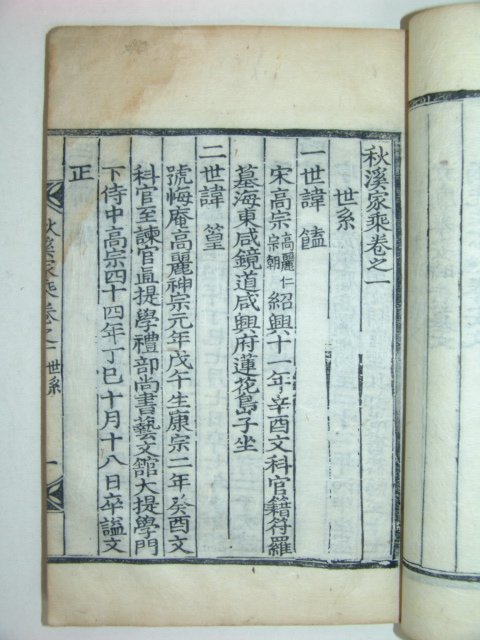 秋溪家乘卷之一
世系
一世諱 饁
宋高宗高麗仁宗朝紹興十一年辛酉文科官籍符羅
墓海東咸鏡道咸興府蓮花島子坐
二世諱 篁
號悔庵高麗神宗元年戊午生康宗二年癸酉文
科官至諫官直提學禮部尚書藝文館大提學門
下侍中高宗四十四年丁巳十月十八日卒諡文
正
秋溪家乘卷之一 世系 一